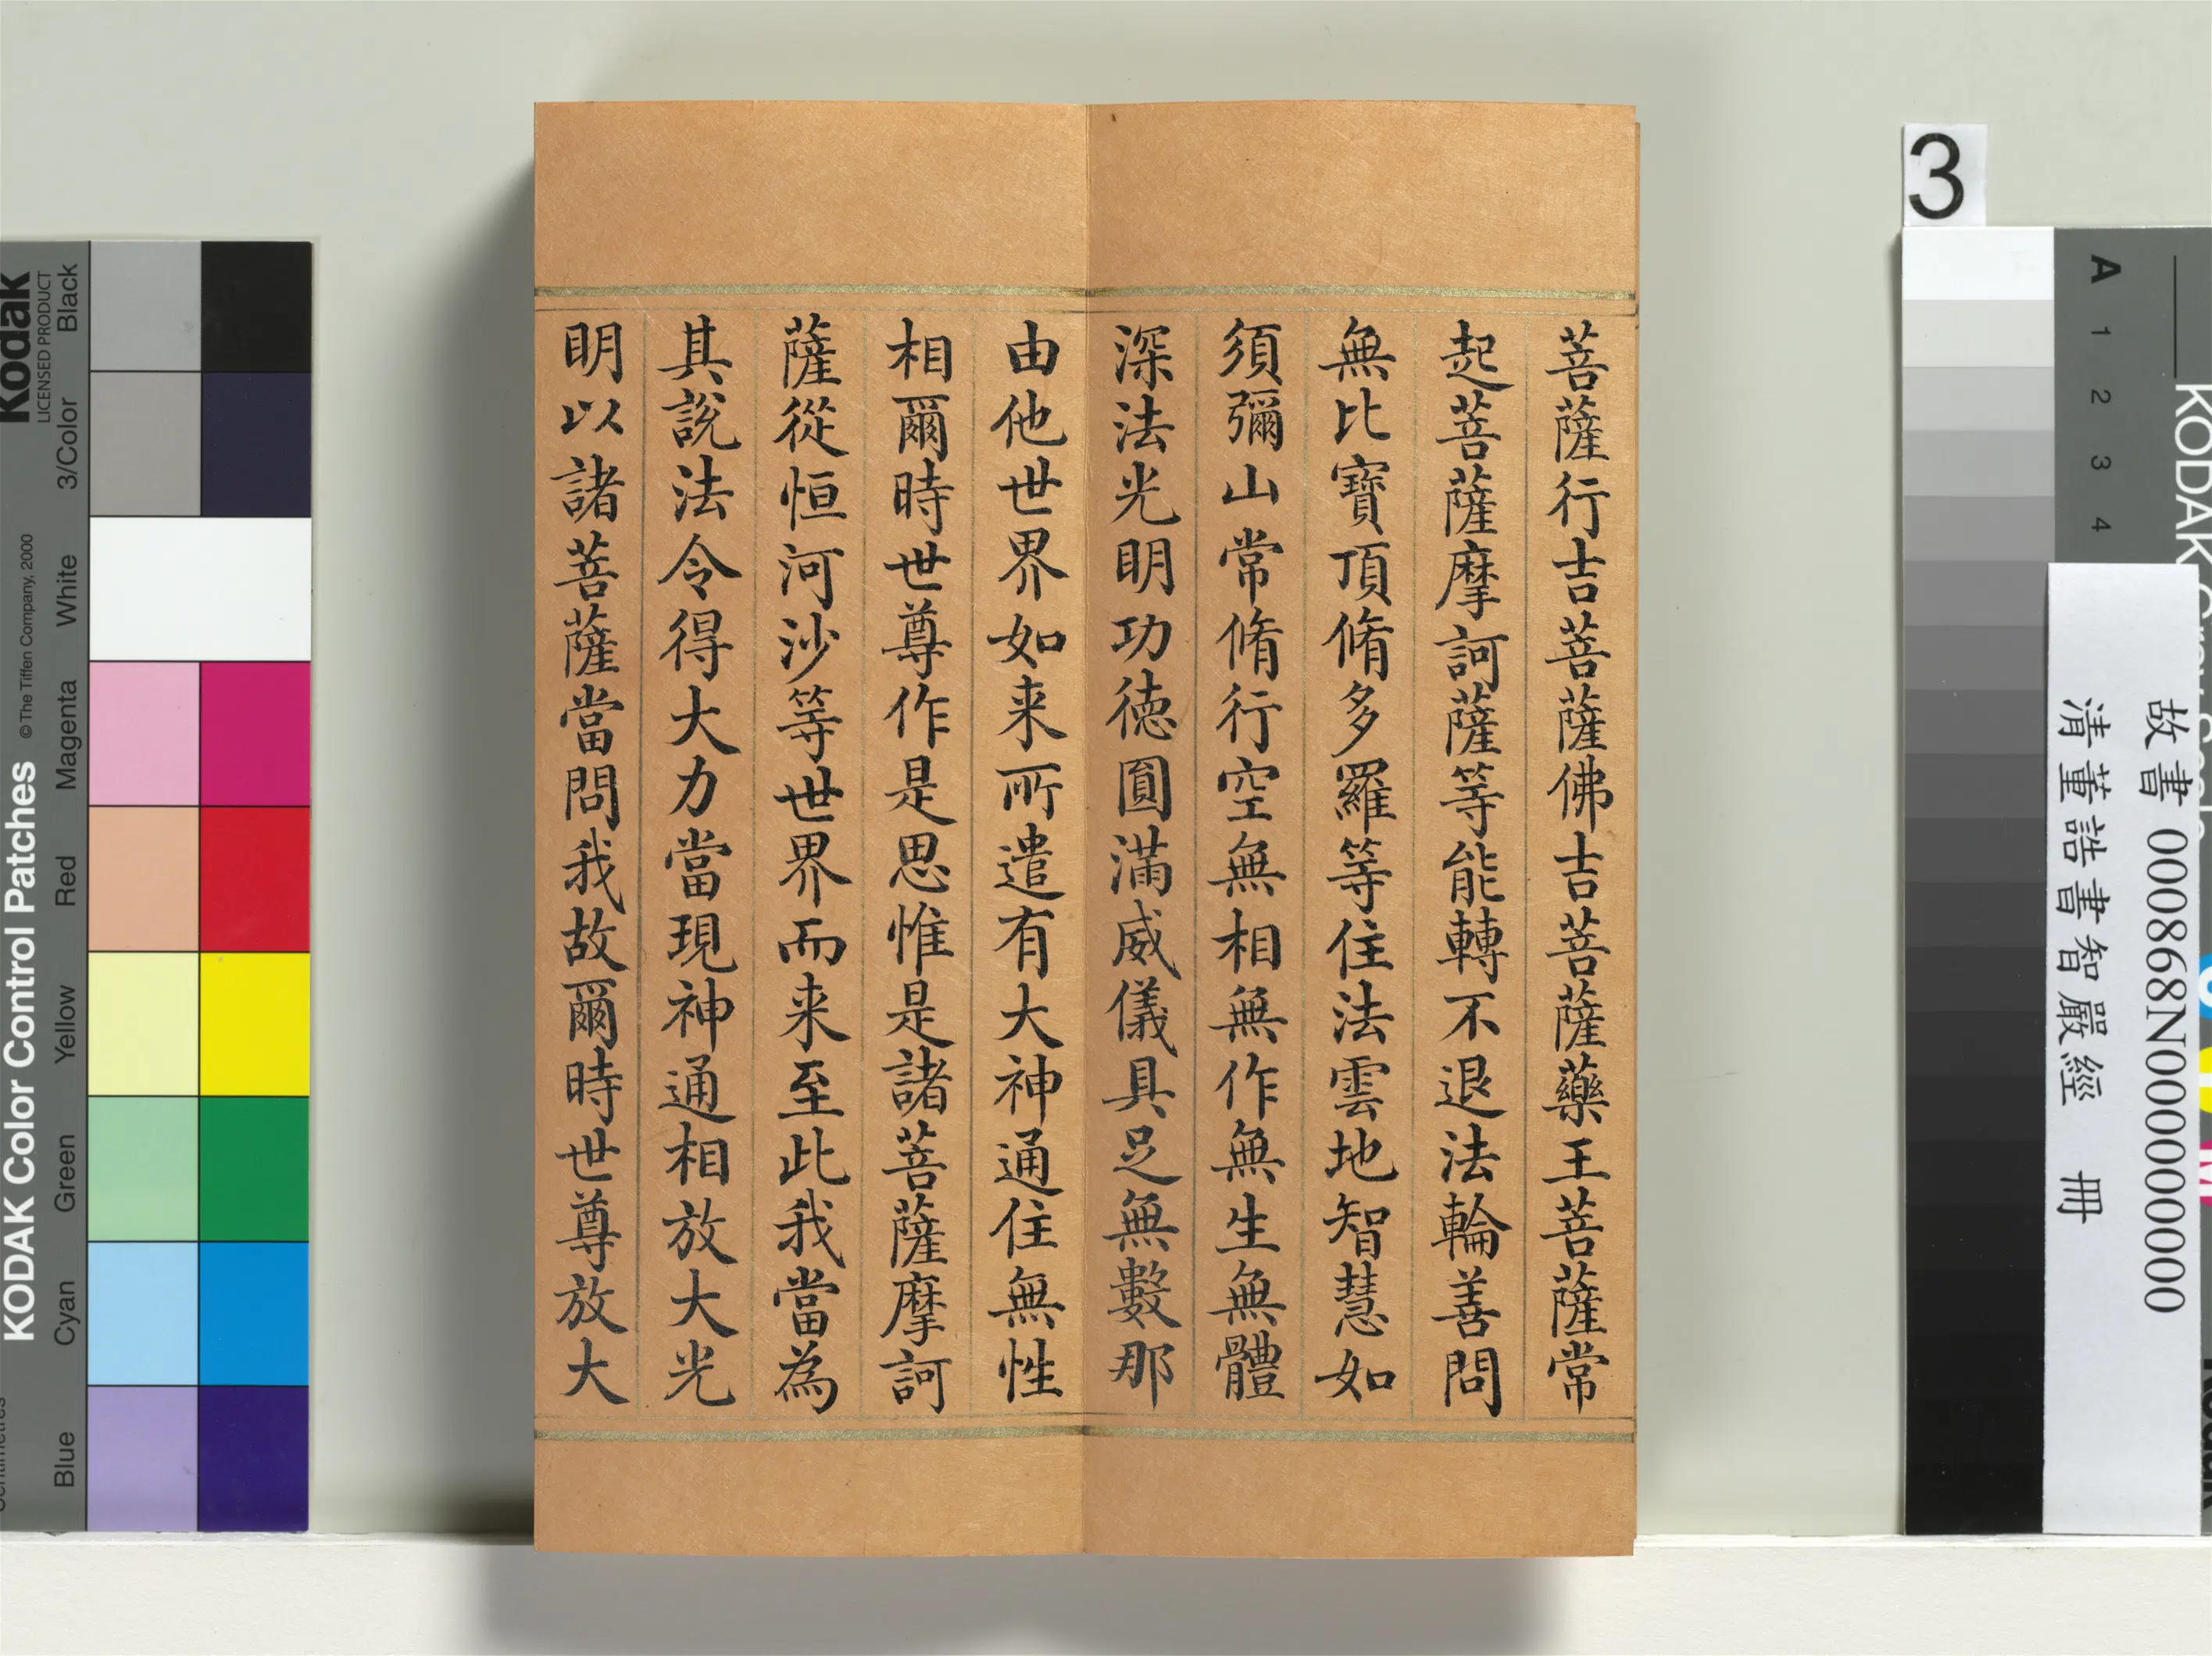 菩薩行吉菩薩佛吉菩薩藥王菩薩常
起菩薩摩訶薩等能轉不退法輪善問
無比寶頂脩多羅等住法雲地智慧如
須彌山常脩行空無相無作無生無體
深法光明功徳圓滿威儀具足無數那
由他世界如来所遣有大神通住無性
相爾時世尊作是思惟是諸菩薩摩訶
薩從恒河沙等世界而来至此我當為
其說法令得大力當現神通相放大光
明以諸菩薩當問我故爾時世尊放大
3
A 1 2 3 4
故書 000868N000000000
清董誥書智嚴經 冊
KODAK
Kodak
LICENSED PRODUCT
KODAK Color Control Patches
©The Tiffen Company, 2000
Black
3/Color
White
Magenta
Red
Yellow
Green
Cyan
Blue